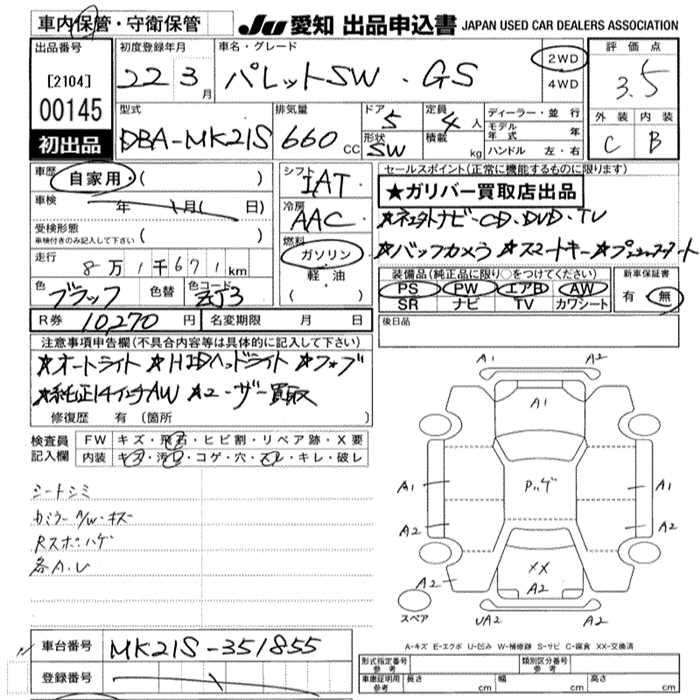 車内保管・守衛保管
JU 愛知 出品申込書 JAPAN USED CAR DEALERS ASSOCIATION
出品番号
[2104]
00145
初出品
初度登録年月
22 3月
車名・グレード
パレットSW・GS
2WD
4WD
評価点
3.5
外装 内装
C B
型式
DBA-MK21S
排気量
660 CC
ドア
5
形状
SW
定員
4人
積載
kg
ディーラー・並行
モデル年式 年
ハンドル 左・右
車歴
自家用・( )
車検
年 月( 日)
受検形態
車検付きのみ記入して下さい ( )
走行
8万1千671km
色
ブラック
色替
色コード
ZJ3
シフト
IAT
冷房
AAC
燃料
ガソリン
・軽・油
( )
セールスポイント(正常に機能するものに限ります)
★ガリバー買取店出品
★社外ナビ-CD・DVD・TV
★バックカメラ ★スマートキー★プッシュスタート
装備品(純正品に限り○をつけてください)
PS PW エアB AW
SR ナビ TV カワシート
新車保証書
有・無
R券 10,270円
名変期限 月 日
後日品
注意事項申告欄(不具合内容等は具体的に記入して下さい)
★オートライト ★HIDヘッドライト ★フォグ
★純正14インチAW ★ユーザー買取
修復歴 有(箇所
検査員記入欄
FW キズ・飛石・ヒビ割・リペア跡・X要
内装 キズ・汚れ・コゲ・穴・スレ・キレ・破レ
シートシミ
カミラーA/W・キズ
Rスポハゲ
各A.U
A1 A2
A1
A1 Pハゲ A1
A2 A2
XX
A2 A2 A2
UA2 A2
スペア
A-キズ E-エクボ U-凹み W-補修跡 S-サビ C-腐食 XX-交換済
車台番号 MK21S-351855
登録番号
形式指定番号 参考
類別区分番号 参考
車庫証明用 参考
長さ cm 幅 cm 高さ cm